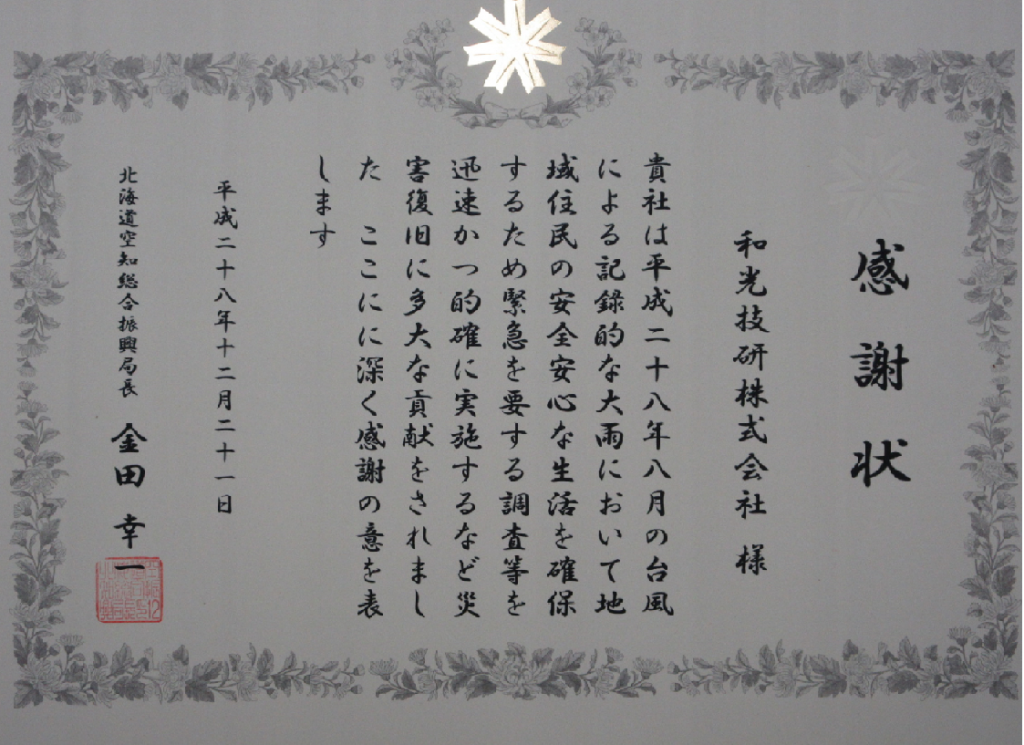 感謝状
和光技研株式会社 様
貴社は平成二十八年八月の台風
による記録的な大雨において地
域住民の安全安心な生活を確保
するため緊急を要する調査等を
迅速かつ的確に実施するなど災
害復旧に多大な貢献をされまし
た ここにに深く感謝の意を表
します
平成二十八年十二月二十一日
北海道空知総合振興局長 金田 幸一